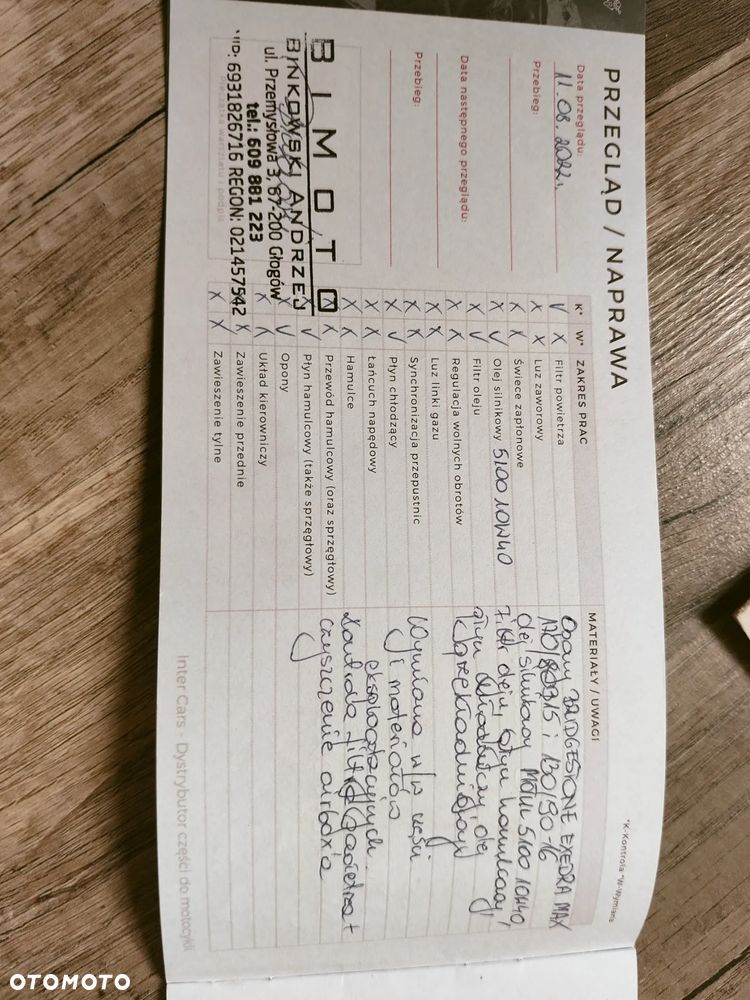 PRZEGLĄD / NAPRAWA
Data przeglądu:
11.08.2022r.
Przebieg:
Data następnego przeglądu:
Przebieg:
BIMOTO
BIŃKOWSKI ANDRZEJ
ul. Przemysłowa 3, 67-200 Głogów
tel.: 609 881 223
NIP: 6931826716 REGON: 021457542
Pieczątka warsztatu i podpis
K* W* ZAKRES PRAC
V X Filtr powietrza
X X Luz zaworowy
X X Świece zapłonowe
X V Olej silnikowy 5100 10W40
X V Filtr oleju
X X Regulacja wolnych obrotów
X X Luz linki gazu
X X Synchronizacja przepustnic
X V Płyn chłodzący
X X Łańcuch napędowy
X X Hamulce
X X Przewód hamulcowy (oraz sprzęgłowy)
X V Płyn hamulcowy (także sprzęgłowy)
X V Opony
X X Układ kierowniczy
X X Zawieszenie przednie
X X Zawieszenie tylne
MATERIAŁY / UWAGI
Opony BRIDGESTONE EXEDRA MAX
170/80B15 i 130/90-16
olej silnikowy Motul 5100 10W40,
filtr oleju, płyn hamulcowy,
płyn chłodniczy, olej
Wymiana w/w części
i materiałów
eksploatacyjnych.
Kontrola filtra powietrza +
czyszczenie airbox'a
*K-Kontrola *W-Wymiana
Inter Cars - Dystrybutor części do motocykli
OTOMOTO